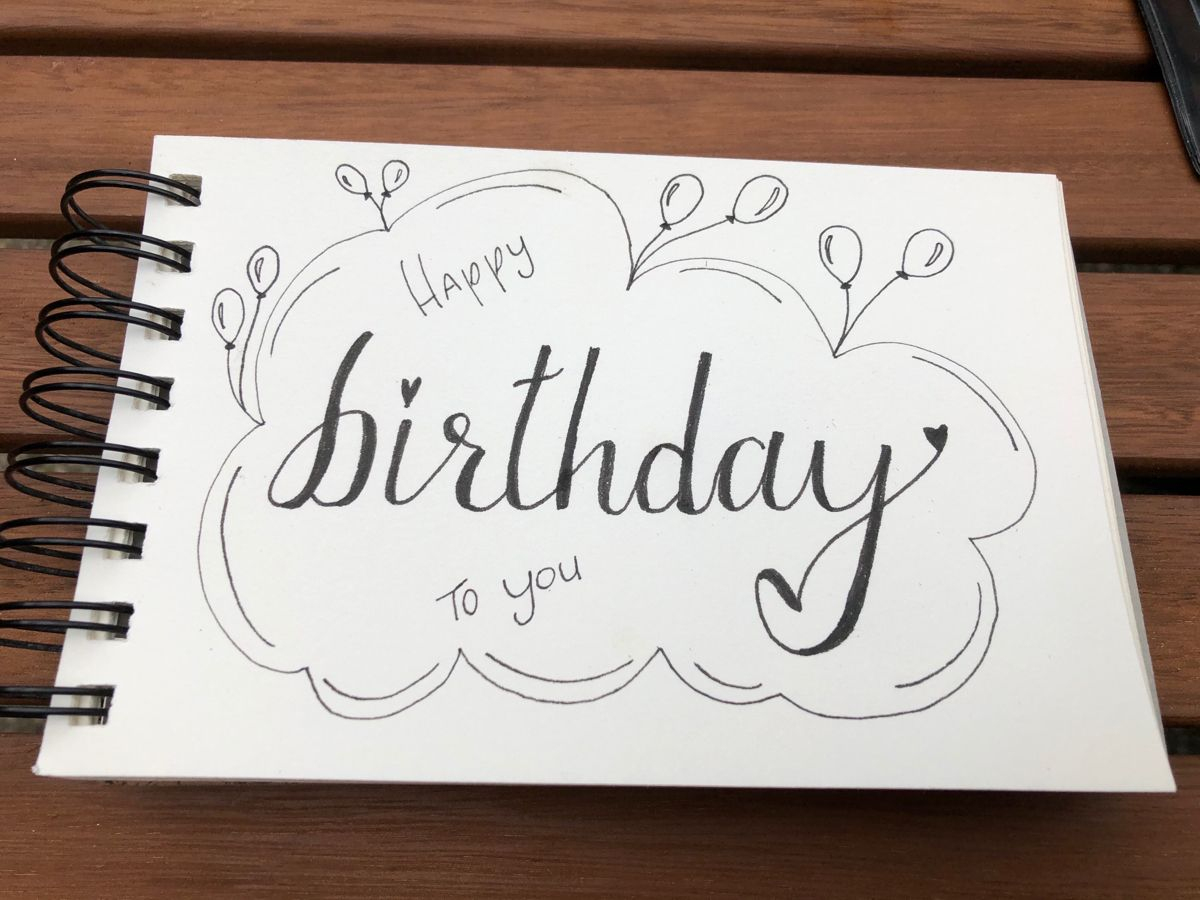 Happy
birthday
To you